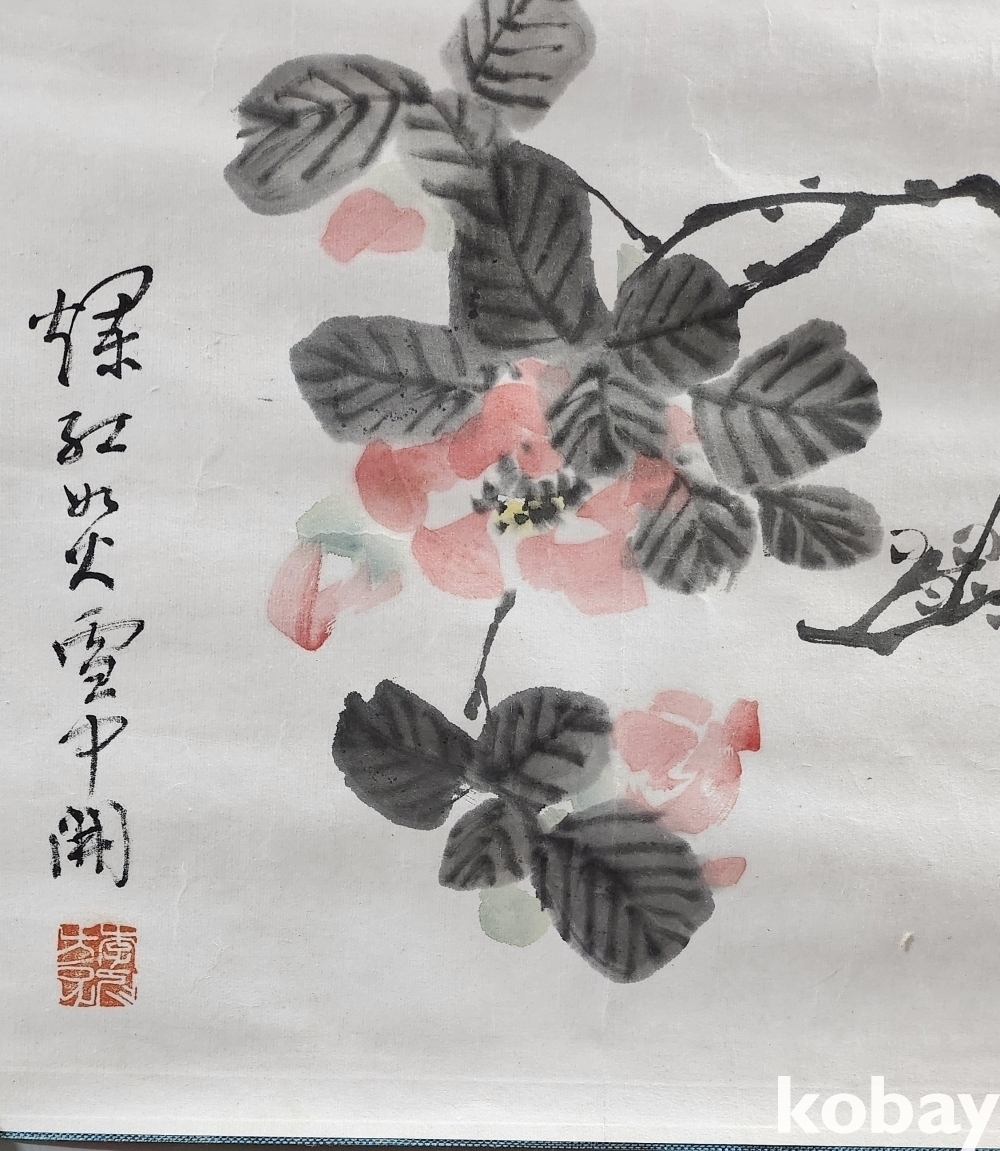 爛紅如火雪中開
kobay